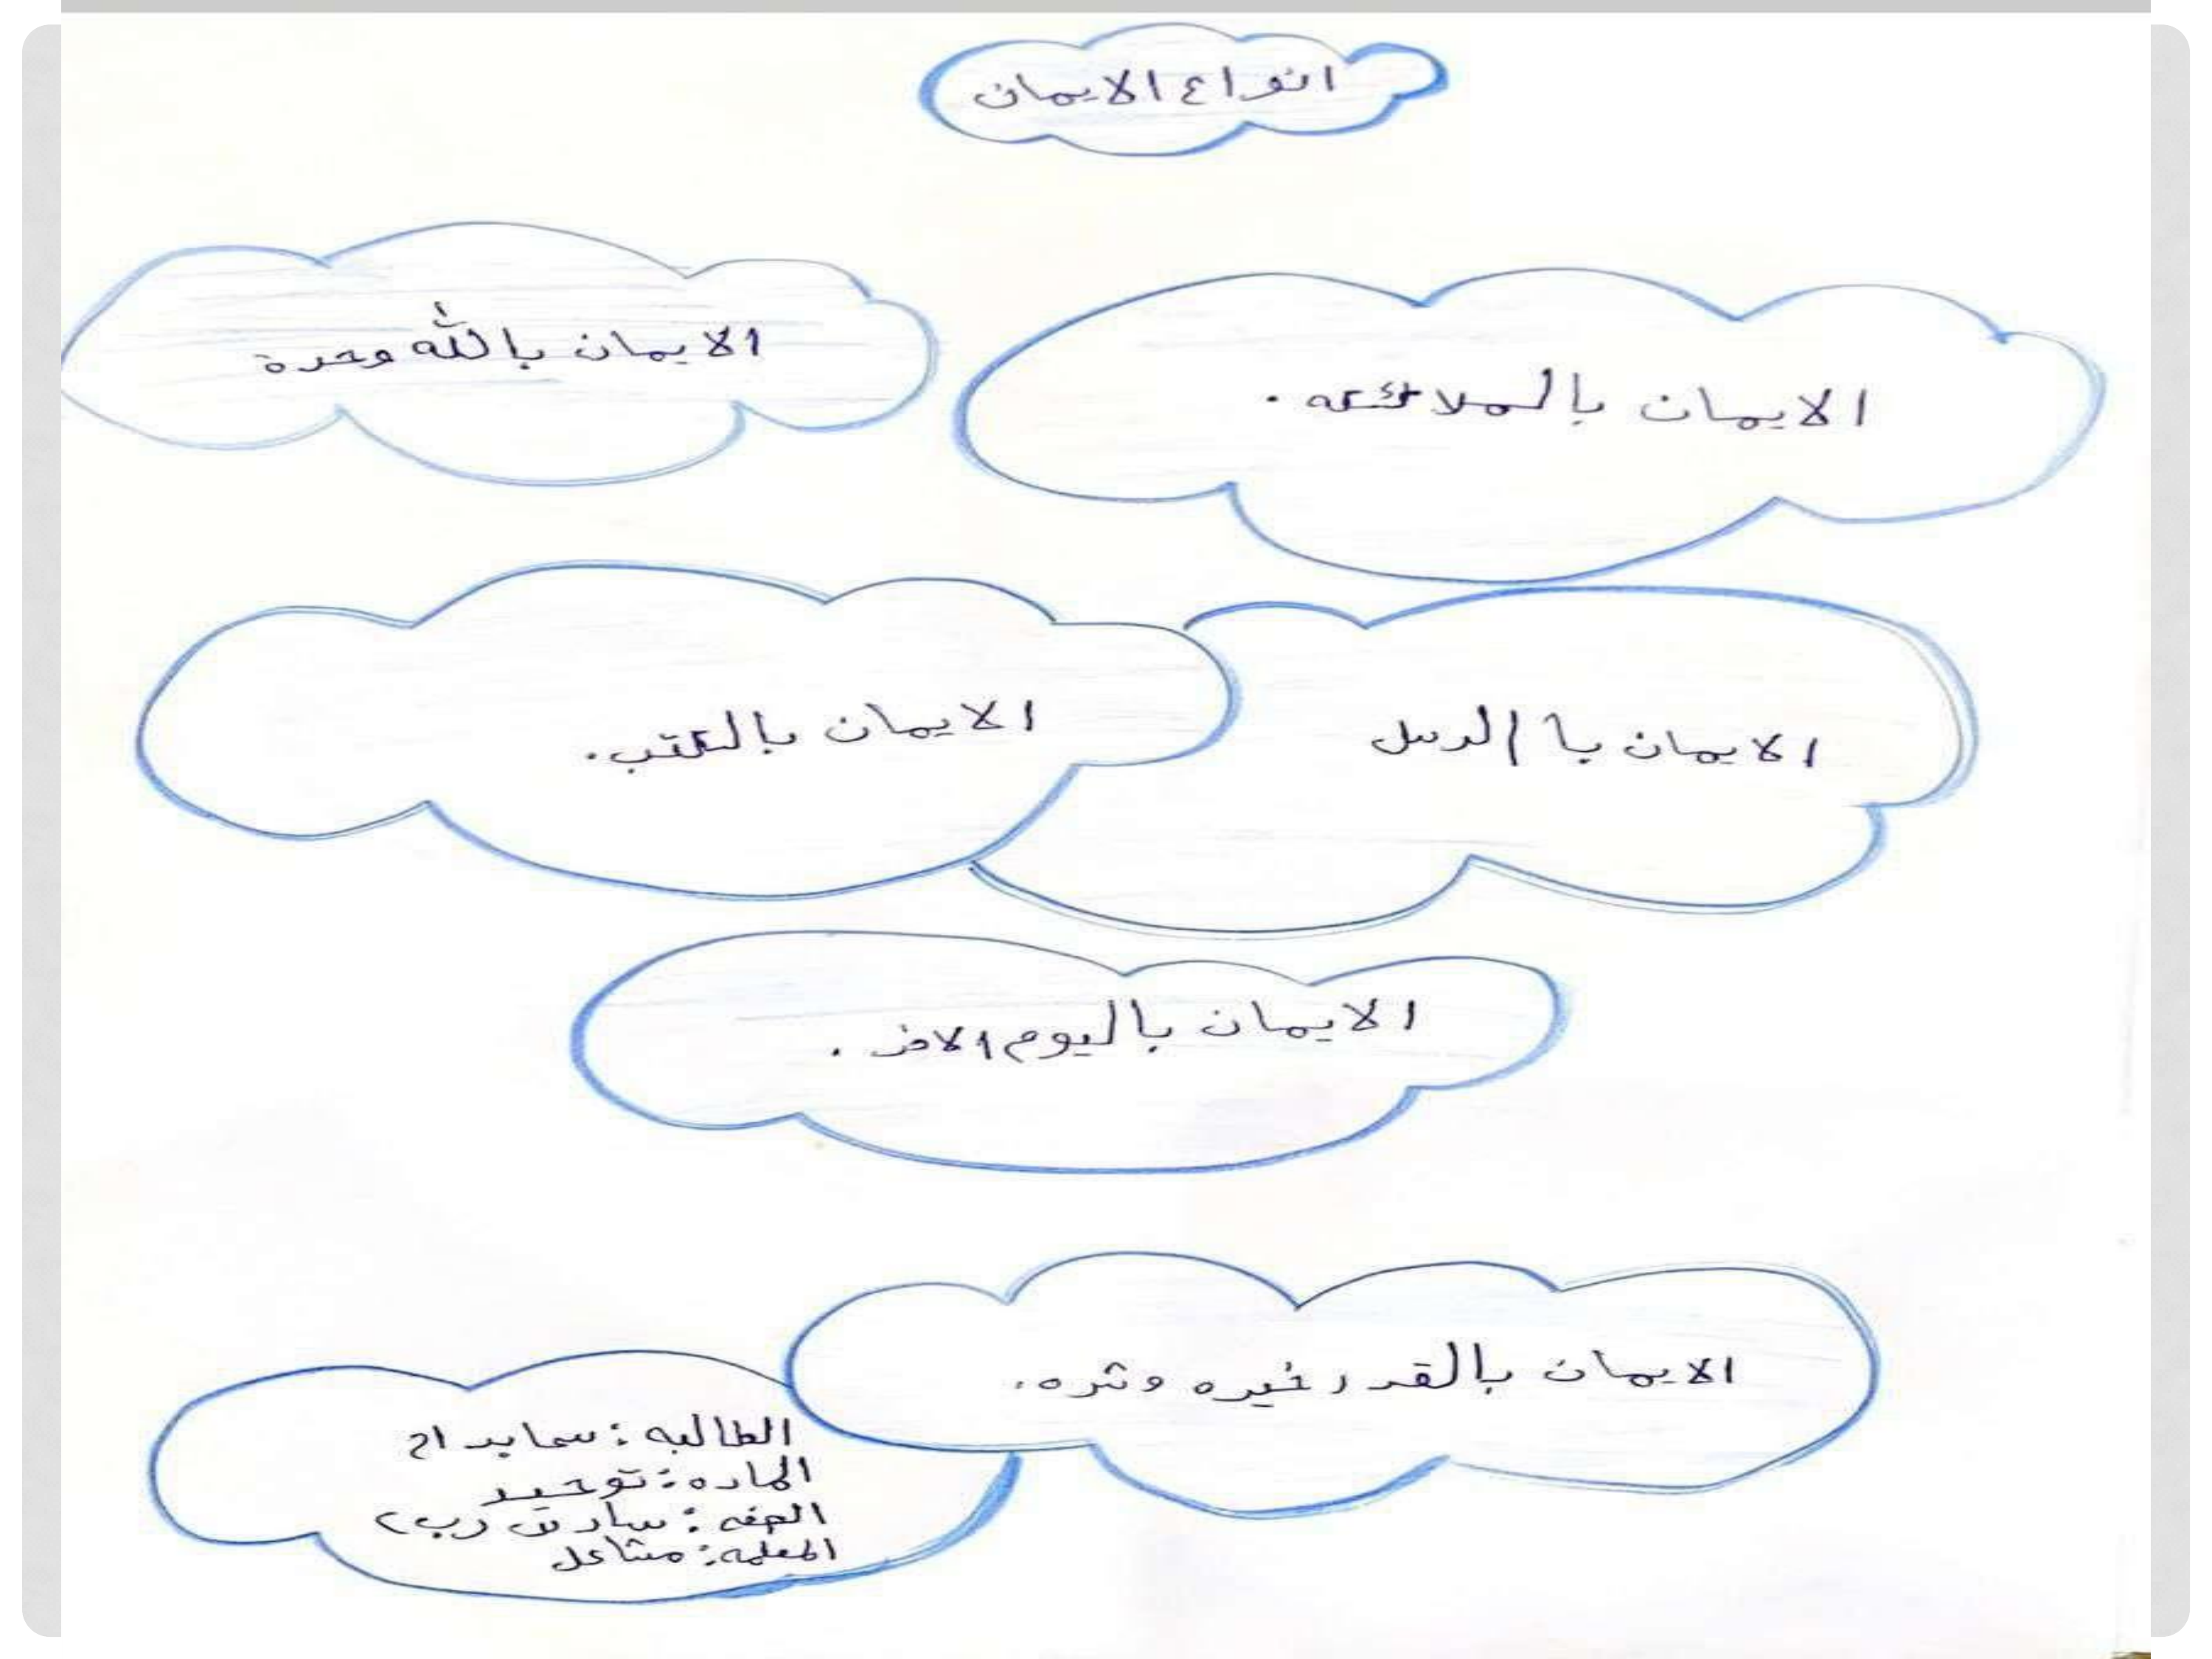 انواع الايمان
الايمان بالملائكه .
الايمان بالله وحدة
الايمان با الرسل
الايمان بالكتب .
الايمان باليوم الاخر .
الايمان بالقدر خيره وشره .
الطالبه :
الماده : توحيد
الصفه : سادس ب٢
المعلمه : مشاعل